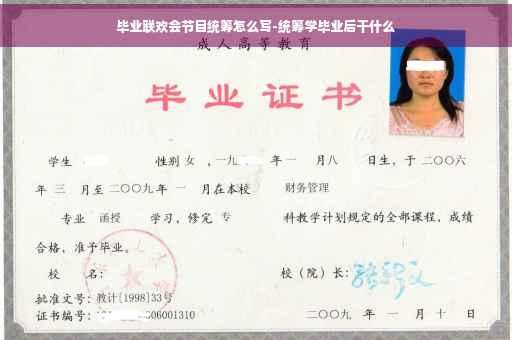 毕业联欢会节目统筹怎么写-统筹学毕业后干什么
成人高等教育
毕业证书
学生 性别 女 ，一九 年 一 月 八 日生，于 二〇〇六
年 三 月至 二〇〇九 年 一 月在本校 财务管理
专业 函授 学习，修完 专 科教学计划规定的全部课程，成绩
合格，准予毕业。
校 名： 校（院）长：
批准文号：教计[1998]33号
证书编号： 06001310 二〇〇九 年 一 月 十 日